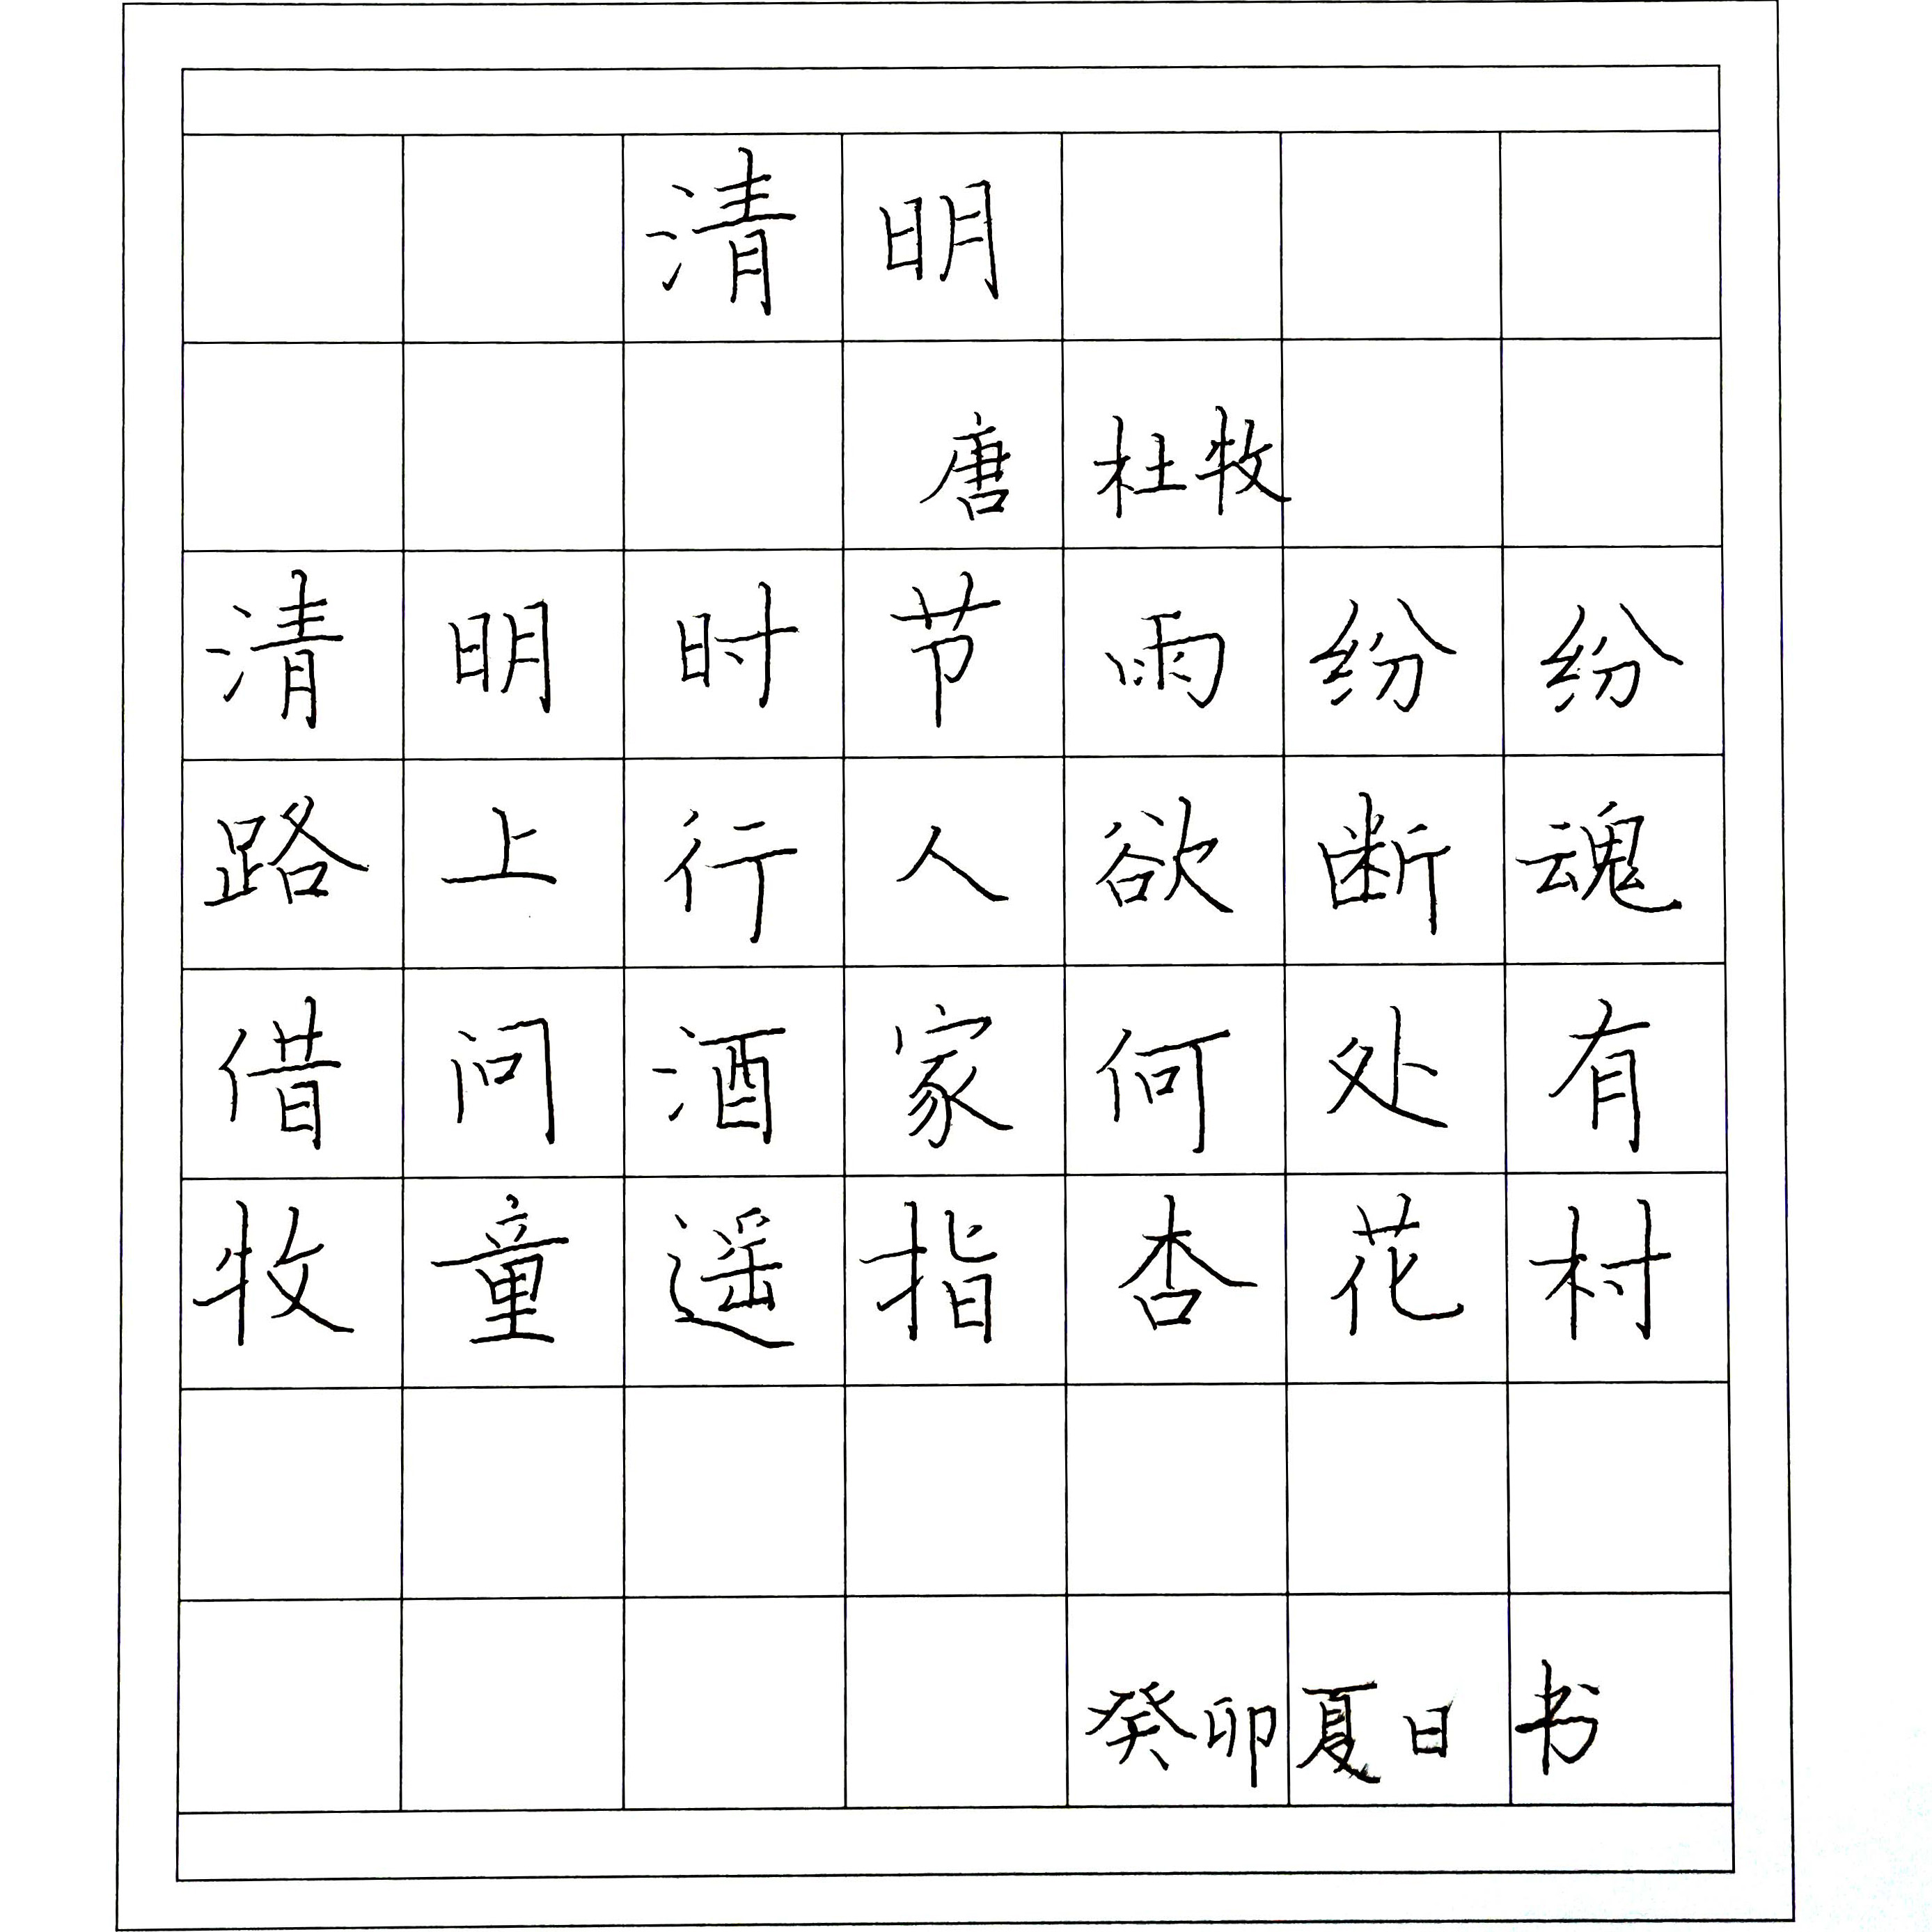 清明
唐 杜牧
清明时节雨纷纷
路上行人欲断魂
借问酒家何处有
牧童遥指杏花村
癸卯夏日书